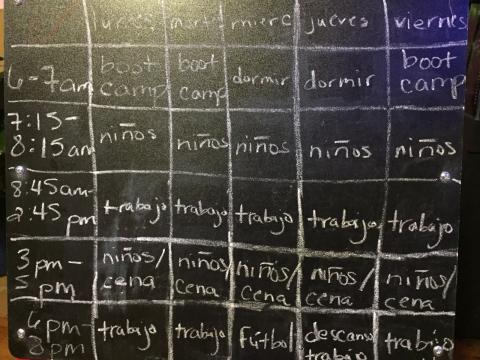 lunes marte mierc jueves viernes
6-7am boot camp boot camp dormir dormir boot camp
7:15- 8:15am niños niños niños niños niños
8:45am- 2:45 pm trabajo trabajo trabajo trabajo trabajo
3pm- 5pm niños/ cena niños/ cena niños/ cena niños/ cena niños/ cena
6pm- 8pm trabajo trabajo fútbol descanso trabajo trabajo